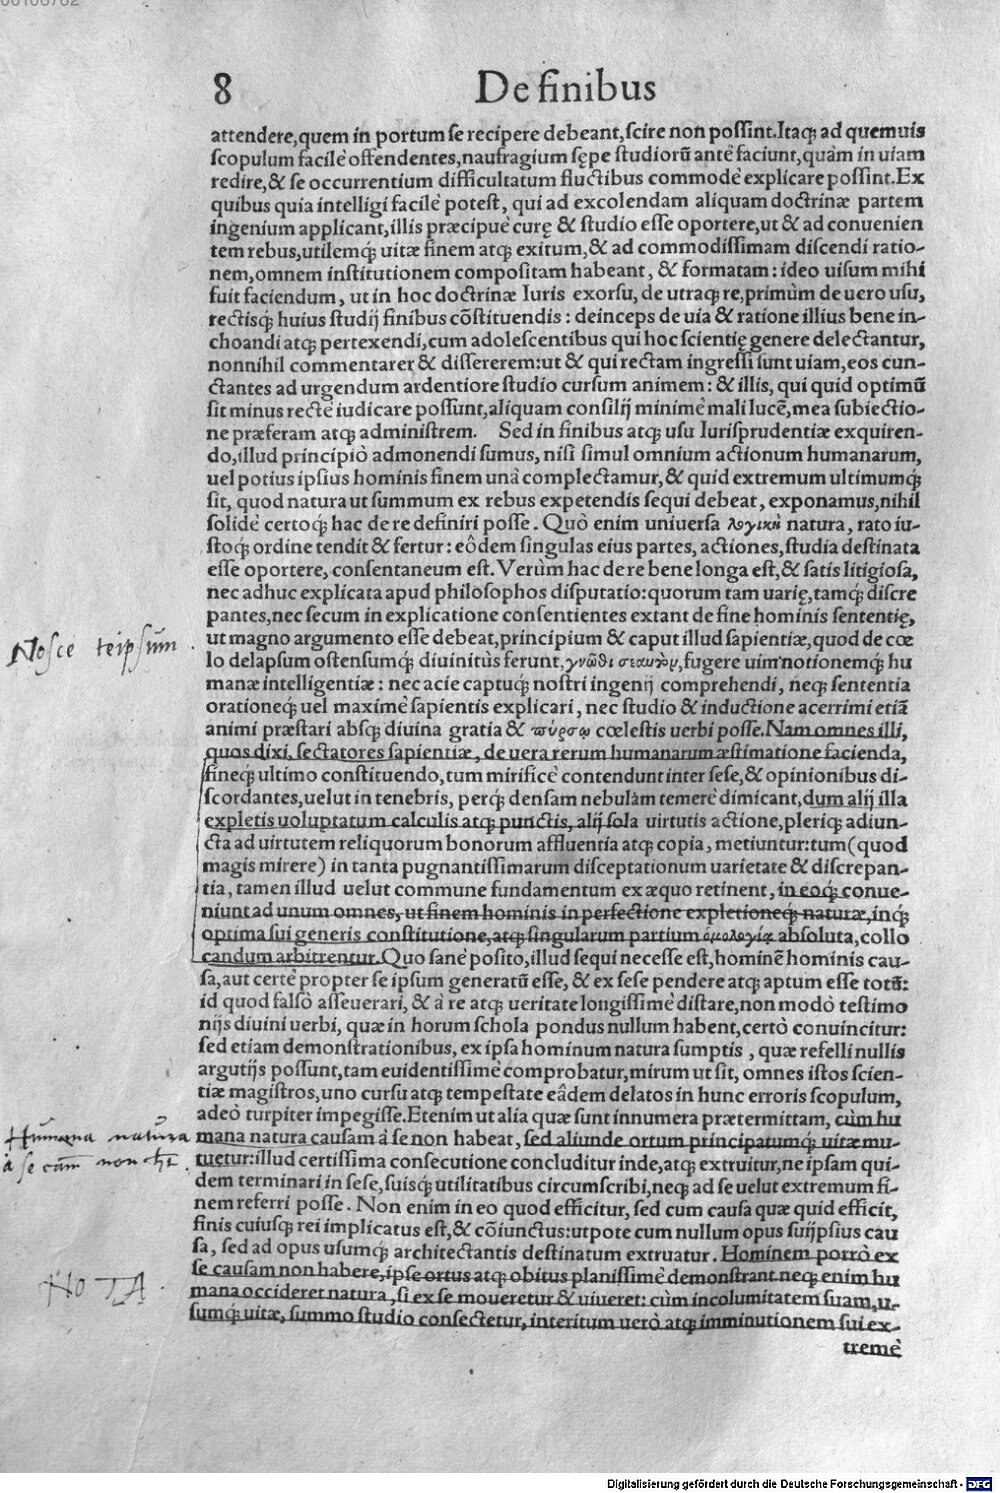 00106762
8 De finibus
attendere,quem in portum ſe recipere debeant,ſcire non poſſint.Itaq; ad quemuis
ſcopulum facilè offendentes,naufragium ſępe ſtudiorũ antè faciunt,quàm in uiam
redire,& ſe occurrentium difficultatum fluctibus commodè explicare poſſint.Ex
quibus quia intelligi facilè poteſt, qui ad excolendam aliquam doctrinæ partem
ingenium applicant,illis præcipuè curę & ſtudio eſſe oportere,ut & ad conuenien
tem rebus,utilemq́; uitæ finem atq; exitum,& ad commodiſſimam diſcendi ratio-
nem,omnem inſtitutionem compoſitam habeant, & formatam: ideo uiſum mihi
fuit faciendum, ut in hoc doctrinæ Iuris exorſu, de utraq; re,primùm de uero uſu,
rectisq́; huius ſtudij finibus cõſtituendis: deinceps de uia & ratione illius bene in-
choandi atq; pertexendi,cum adoleſcentibus qui hoc ſcientię genere delectantur,
nonnihil commentarer & diſſererem:ut & qui rectam ingreſſi ſunt uiam,eos cun-
ctantes ad urgendum ardentiore ſtudio curſum animem: & illis, qui quid optimũ
ſit minus rectè iudicare poſſunt,aliquam conſilij minimè mali lucẽ,mea ſubiectio-
ne præferam atq; adminiſtrem. Sed in finibus atq; uſu Iuriſprudentiæ exquiren-
do,illud principiò admonendi ſumus, niſi ſimul omnium actionum humanarum,
uel potius ipſius hominis finem unà complectamur,& quid extremum ultimumq́;
ſit, quod natura ut ſummum ex rebus expetendis ſequi debeat, exponamus,nihil
ſolidè certoq́; hac de re definiri poſſe. Quò enim uniuerſa λογικὴ natura, rato iu-
ſtoq́; ordine tendit & fertur: eôdem ſingulas eius partes, actiones,ſtudia deſtinata
eſſe oportere, conſentaneum eſt. Verùm hac de re bene longa eſt,& ſatis litigioſa,
nec adhuc explicata apud philoſophos diſputatio:quorum tam uarię,tamq́; diſcre
pantes,nec ſecum in explicatione conſentientes extant de fine hominis ſententię,
ut magno argumento eſſe debeat,principium & caput illud ſapientiæ,quod de cœ
Noſce teipſũm.
lo delapſum oſtenſumq́; diuinitùs ferunt,γνῶθι σεαυτὸν,fugere uim notionemq́; hu
manæ intelligentiæ: nec acie captuq́; noſtri ingenij comprehendi, neq; ſententia
orationeq́; uel maximè ſapientis explicari, nec ſtudio & inductione acerrimi etiã
animi præſtari absq; diuina gratia & πύρσῳ cœleſtis uerbi poſſe.Nam omnes illi,
quos dixi, ſectatores ſapientiæ, de uera rerum humanarum æſtimatione facienda,
fineq́; ultimo conſtituendo,tum mirificè contendunt inter ſeſe,& opinionibus di-
ſcordantes,uelut in tenebris, perq́; denſam nebulàm temerè dimicant,dum alij illa
expletis uoluptatum calculis atq; punctis, alij ſola uirtutis actione,pleriq; adiun-
cta ad uirtutem reliquorum bonorum affluentia atq; copia, metiuntur:tum(quod
magis mirere) in tanta pugnantiſſimarum diſceptationum uarietate & diſcrepan-
tia, tamen illud uelut commune fundamentum ex æquo retinent, in eoq́; conue-
niunt ad unum omnes, ut finem hominis in perfectione expletioneq́; naturæ,inq́;
optima ſui generis conſtitutione,atq; ſingularum partium ὁμολογίᾳ abſoluta,collo
candum arbitrentur. Quo ſanè poſito,illud ſequi neceſſe eſt,hominẽ hominis cau-
ſa,aut certè propter ſe ipſum generatũ eſſe, & ex ſeſe pendere atq; aptum eſſe totũ:
id quod falſò aſſeuerari, & à re atq; ueritate longiſſimè diſtare,non modò teſtimo
nijs diuini uerbi, quæ in horum ſchola pondus nullum habent,certò conuincitur:
ſed etiam demonſtrationibus, ex ipſa hominum natura ſumptis, quæ refelli nullis
argutijs poſſunt,tam euidentiſſimè comprobatur,mirum ut ſit, omnes iſtos ſcien-
tiæ magiſtros,uno curſu atq; tempeſtate eâdem delatos in hunc erroris ſcopulum,
adeò turpiter impegiſſe.Etenim ut alia quæ ſunt innumera prætermittam, cùm hu
Humana natura
mana natura cauſam à ſe non habeat, ſed aliunde ortum principatumq́; uitæ mu-
à ſe cam̃ non
tuetur:illud certiſſima conſecutione concluditur inde,atq; extruitur,ne ipſam qui-
dem terminari in ſeſe,ſuisq́; utilitatibus circumſcribi,neq; ad ſe uelut extremum fi-
nem referri poſſe. Non enim in eo quod efficitur, ſed cum cauſa quæ quid efficit,
finis cuiuſq; rei implicatus eſt,& cõiunctus:utpote cum nullum opus ſui ipſius cau
ſa, ſed ad opus uſumq́; architectantis deſtinatum extruatur. Hominem porrò ex
NOTA.
ſe cauſam non habere,ipſe ortus atq; obitus planiſſimè demonſtrant.neq; enim hu
mana occideret natura, ſi ex ſe moueretur & uiueret: cùm incolumitatem ſuam,u-
ſumq́; uitæ, ſummo ſtudio conſectetur, interitum uerò atq; imminutionem ſui ex-
tremè
Digitalisierung gefördert durch die Deutsche Forschungsgemeinschaft - DFG